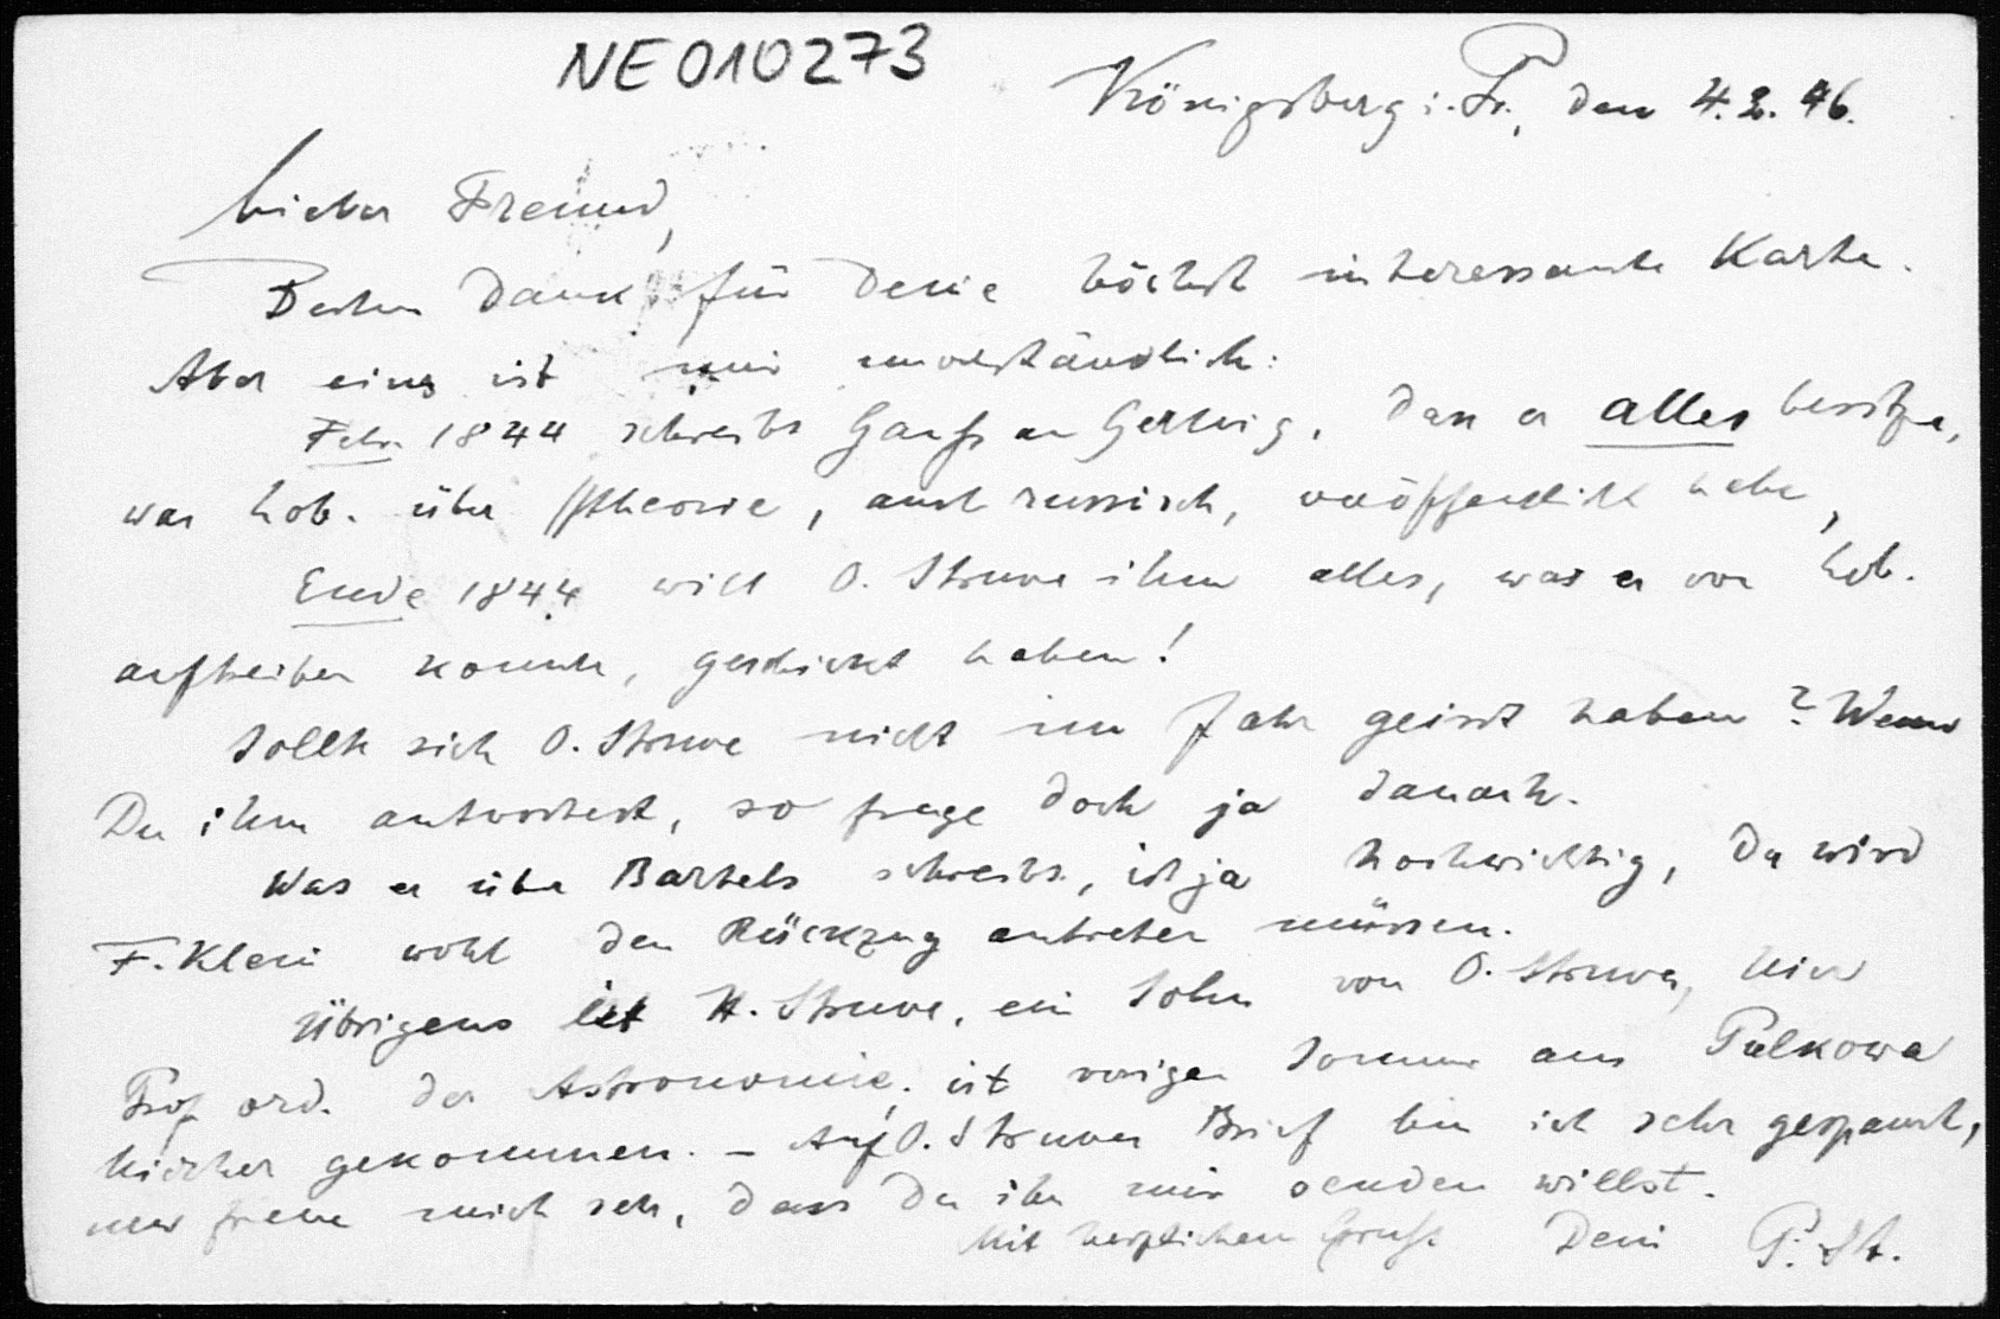 NE010273
Königsberg i. Pr., den 4.2.96.
Lieber Freund,
Besten Dank für Deine höchst interessante Karte.
Aber eins ist mir unverständlich:
Febr 1844 schreibt Gauß an Gerling, dass er alles besitze,
was Lob. über //theorie, auch russisch, veröffentlicht habe,
Ende 1844 will O. Struve ihm alles, was er von Lob.
auftreiben konnte, geschickt haben!
Sollte sich O. Struve nicht im Jahr geirrt haben? Wenn
Du ihm antwortest, so frage doch ja danach.
Was er über Bartels schreibt, ist ja hochwichtig, da wird
F. Klein wohl den Rückzug antreten müssen.
Übrigens ist H. Struve, ein Sohn von O. Struve, hier
Prof ord. der Astronomie, ist vorigen Sommer aus Pulkowa
hierher gekommen. – Auf O. Struves Brief bin ich sehr gespannt,
und freue mich sehr, dass Du ihn mir senden willst.
Mit herzlichem Gruß Dein P. St.